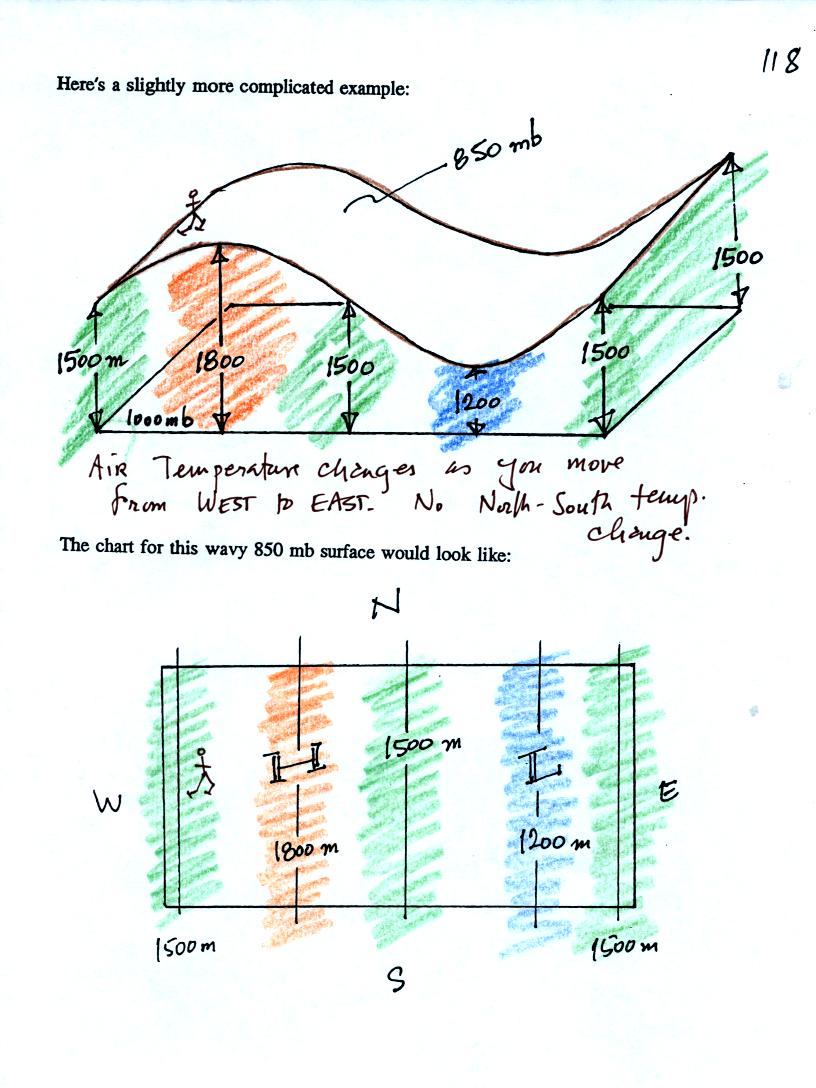 118
Here's a slightly more complicated example:
850 mb
1500
1500 m
1800
1500
1200
1500
1000mb
Air Temperature changes as you move
from WEST to EAST. No North-South temp.
change.
The chart for this wavy 850 mb surface would look like:
N
1500 m
H
L
W
E
1800 m
1200 m
1500 m
1500 m
S